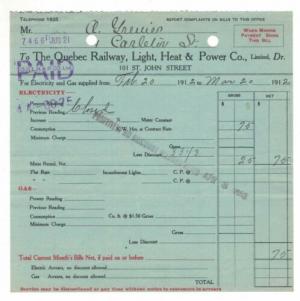 TELEPHONE 1835 REPORT COMPLAINTS ON BILLS TO THIS OFFICE
Mr. A. Grenier
Carleton St
WHEN MAKING PAYMENT BRING THIS BILL
7466 JUN 21
To The Quebec Railway, Light, Heat & Power Co., Limited, Dr.
PAID
101 ST. JOHN STREET
For Electricity and Gas supplied from Feb 20 1912 to Mar 20 1912
ELECTRICITY:— GROSS NET
Present Reading
Previous Reading
Increase Meter Constant
Consumption K.W. Hrs. at Contract Rate 75
Minimum Charge
Gross
Less Discount 33 1/3
Meter Rental, No. 25 75
Flat Rate Incandescent Lights C.P. @
Power C.P. @
GAS:—
Present Reading
Previous Reading
Consumption Cu. ft. @ $1.50 Gross
Minimum Charge
Less Discount
Total Current Month's Bills Net, if paid on or before 75
Electric Arrears, no discount allowed
Gas Arrears, no discount allowed
TOTAL
Service may be discontinued at any time without notice to customers in arrears